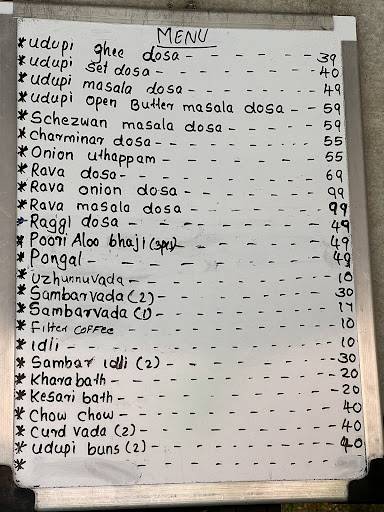 MENU
* udupi ghee dosa - - - - - - - 39
* udupi set dosa - - - - - - - 40
* udupi masala dosa - - - - - - - 49
* udupi open Butter masala dosa - - - 59
* Schezwan masala dosa - - - - - - 59
* charminar dosa - - - - - - - 55
* Onion uthappam - - - - - - - 55
* Rava dosa - - - - - - - 69
* Rava onion dosa - - - - - - - 99
* Rava masala dosa - - - - - - - 99
* Raggi dosa - - - - - - - 49
* Poori Aloo bhaji (3ps) - - - - - - 49
* Pongal - - - - - - - 49
* Uzhunnuvada - - - - - - - 10
* Sambarvada (2) - - - - - - - 30
* Sambarvada (1) - - - - - - - 17
* Filter COFFEE - - - - - - - 10
* idli - - - - - - - 10
* Sambar idli (2) - - - - - - - 30
* Kharabath - - - - - - - 20
* Kesari bath - - - - - - - 20
* Chow chow - - - - - - - 40
* Curd vada (2) - - - - - - - 40
* udupi buns (2) - - - - - - - 40
* - - - - - - -